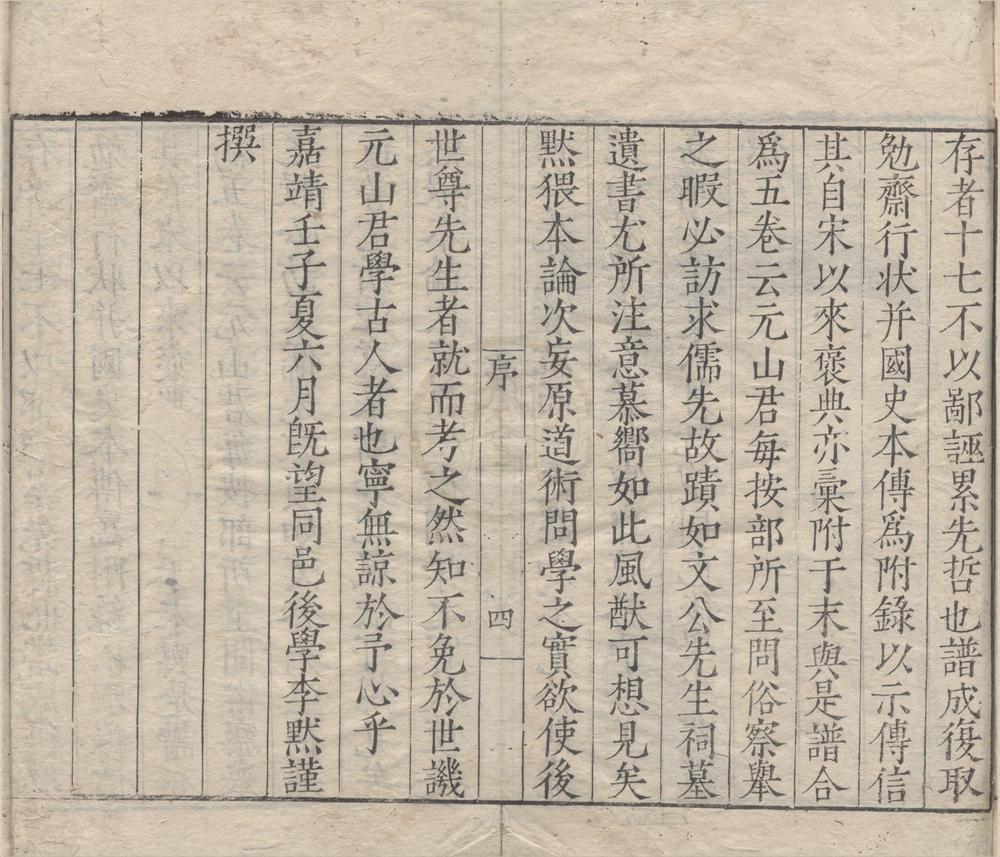 存者十七不以鄙誣累先哲也譜成復取
勉齋行状并國史本傳爲附錄以示傳信
其自宋以來褒典亦彚附于末與是譜合
爲五卷云元山君每按部所至問俗察舉
之暇必訪求儒先故蹟如文公先生祠墓
遺書尤所注意慕嚮如此風猷可想見矣
默猥本論次妄原道術問學之實欲使後
序
四
世尊先生者就而考之然知不免於世譏
元山君學古人者也寧無諒於予心乎
嘉靖壬子夏六月旣望同邑後學李默謹
撰